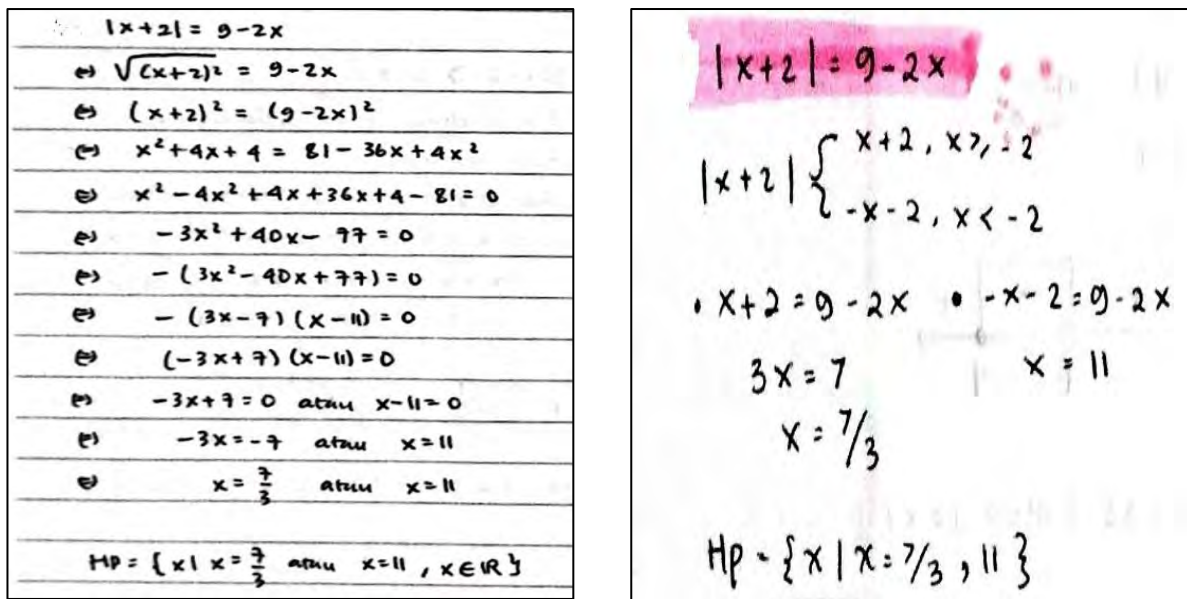 |x+2| = 9-2x
⇔ √(x+2)² = 9-2x
⇔ (x+2)² = (9-2x)²
⇔ x²+4x+4 = 81-36x+4x²
⇔ x²-4x²+4x+36x+4-81=0
⇔ -3x²+40x-77=0
⇔ -(3x²-40x+77)=0
⇔ -(3x-7)(x-11)=0
⇔ (-3x+7)(x-11)=0
⇔ -3x+7=0 atau x-11=0
⇔ -3x=-7 atau x=11
⇔ x=7/3 atau x=11
HP = {x| x=7/3 atau x=11, x∈IR}
|x+2| = 9-2x
|x+2| { x+2, x≥-2
-x-2, x<-2
• x+2=9-2x • -x-2=9-2x
3x=7 x=11
x=7/3
Hp = {x | x=7/3, 11}